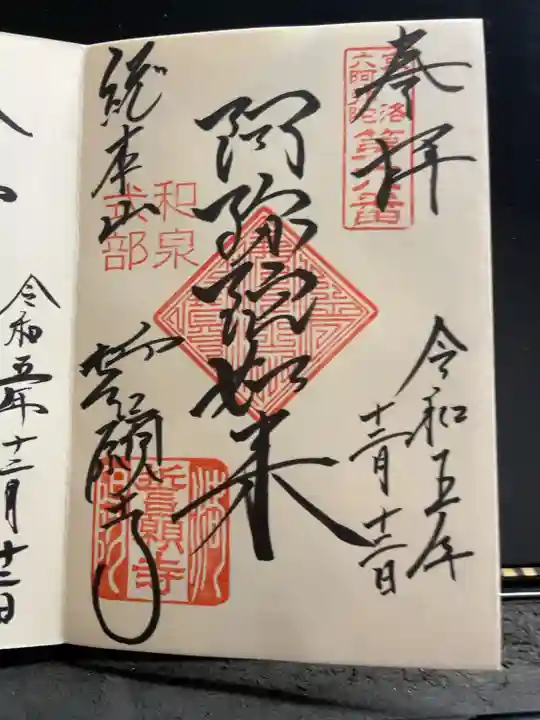 奉拝
洛
六阿弥陀
令和五年
十二月十二日
阿弥陀如来
和泉
式部
総本山
誓願寺
誓願寺
令和五年十二月十二日